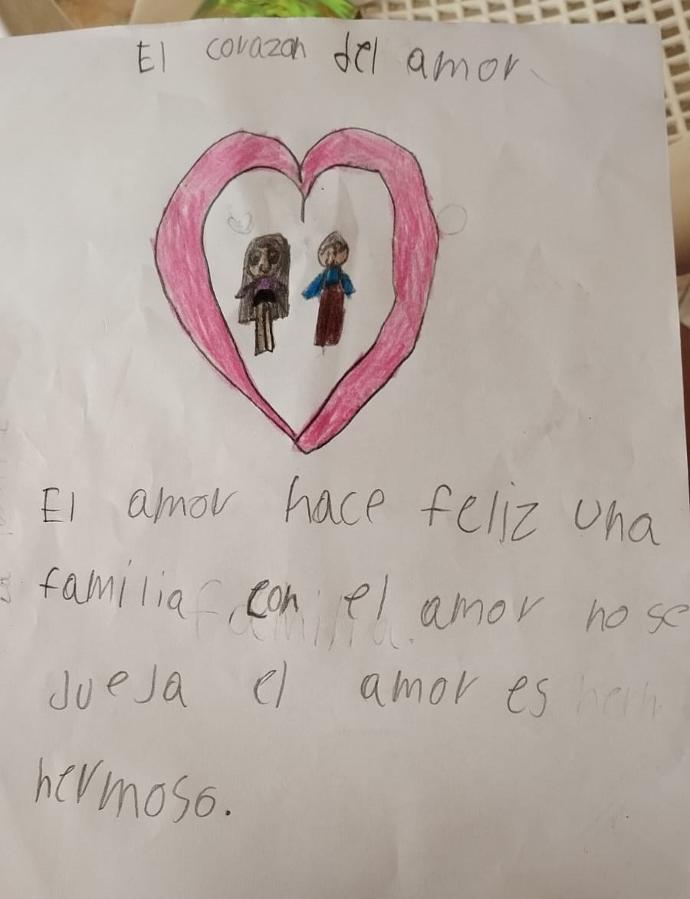 El corazon del amor
El amor hace feliz una
familia con el amor no se
JueJa el amor es
hermoso.